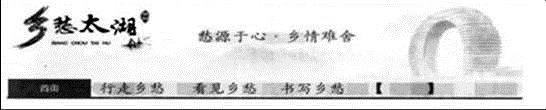 乡愁太湖
XIANG CHOU TAI HU
愁源于心·乡情难舍
首页 行走乡愁 看见乡愁 书写乡愁 【 】